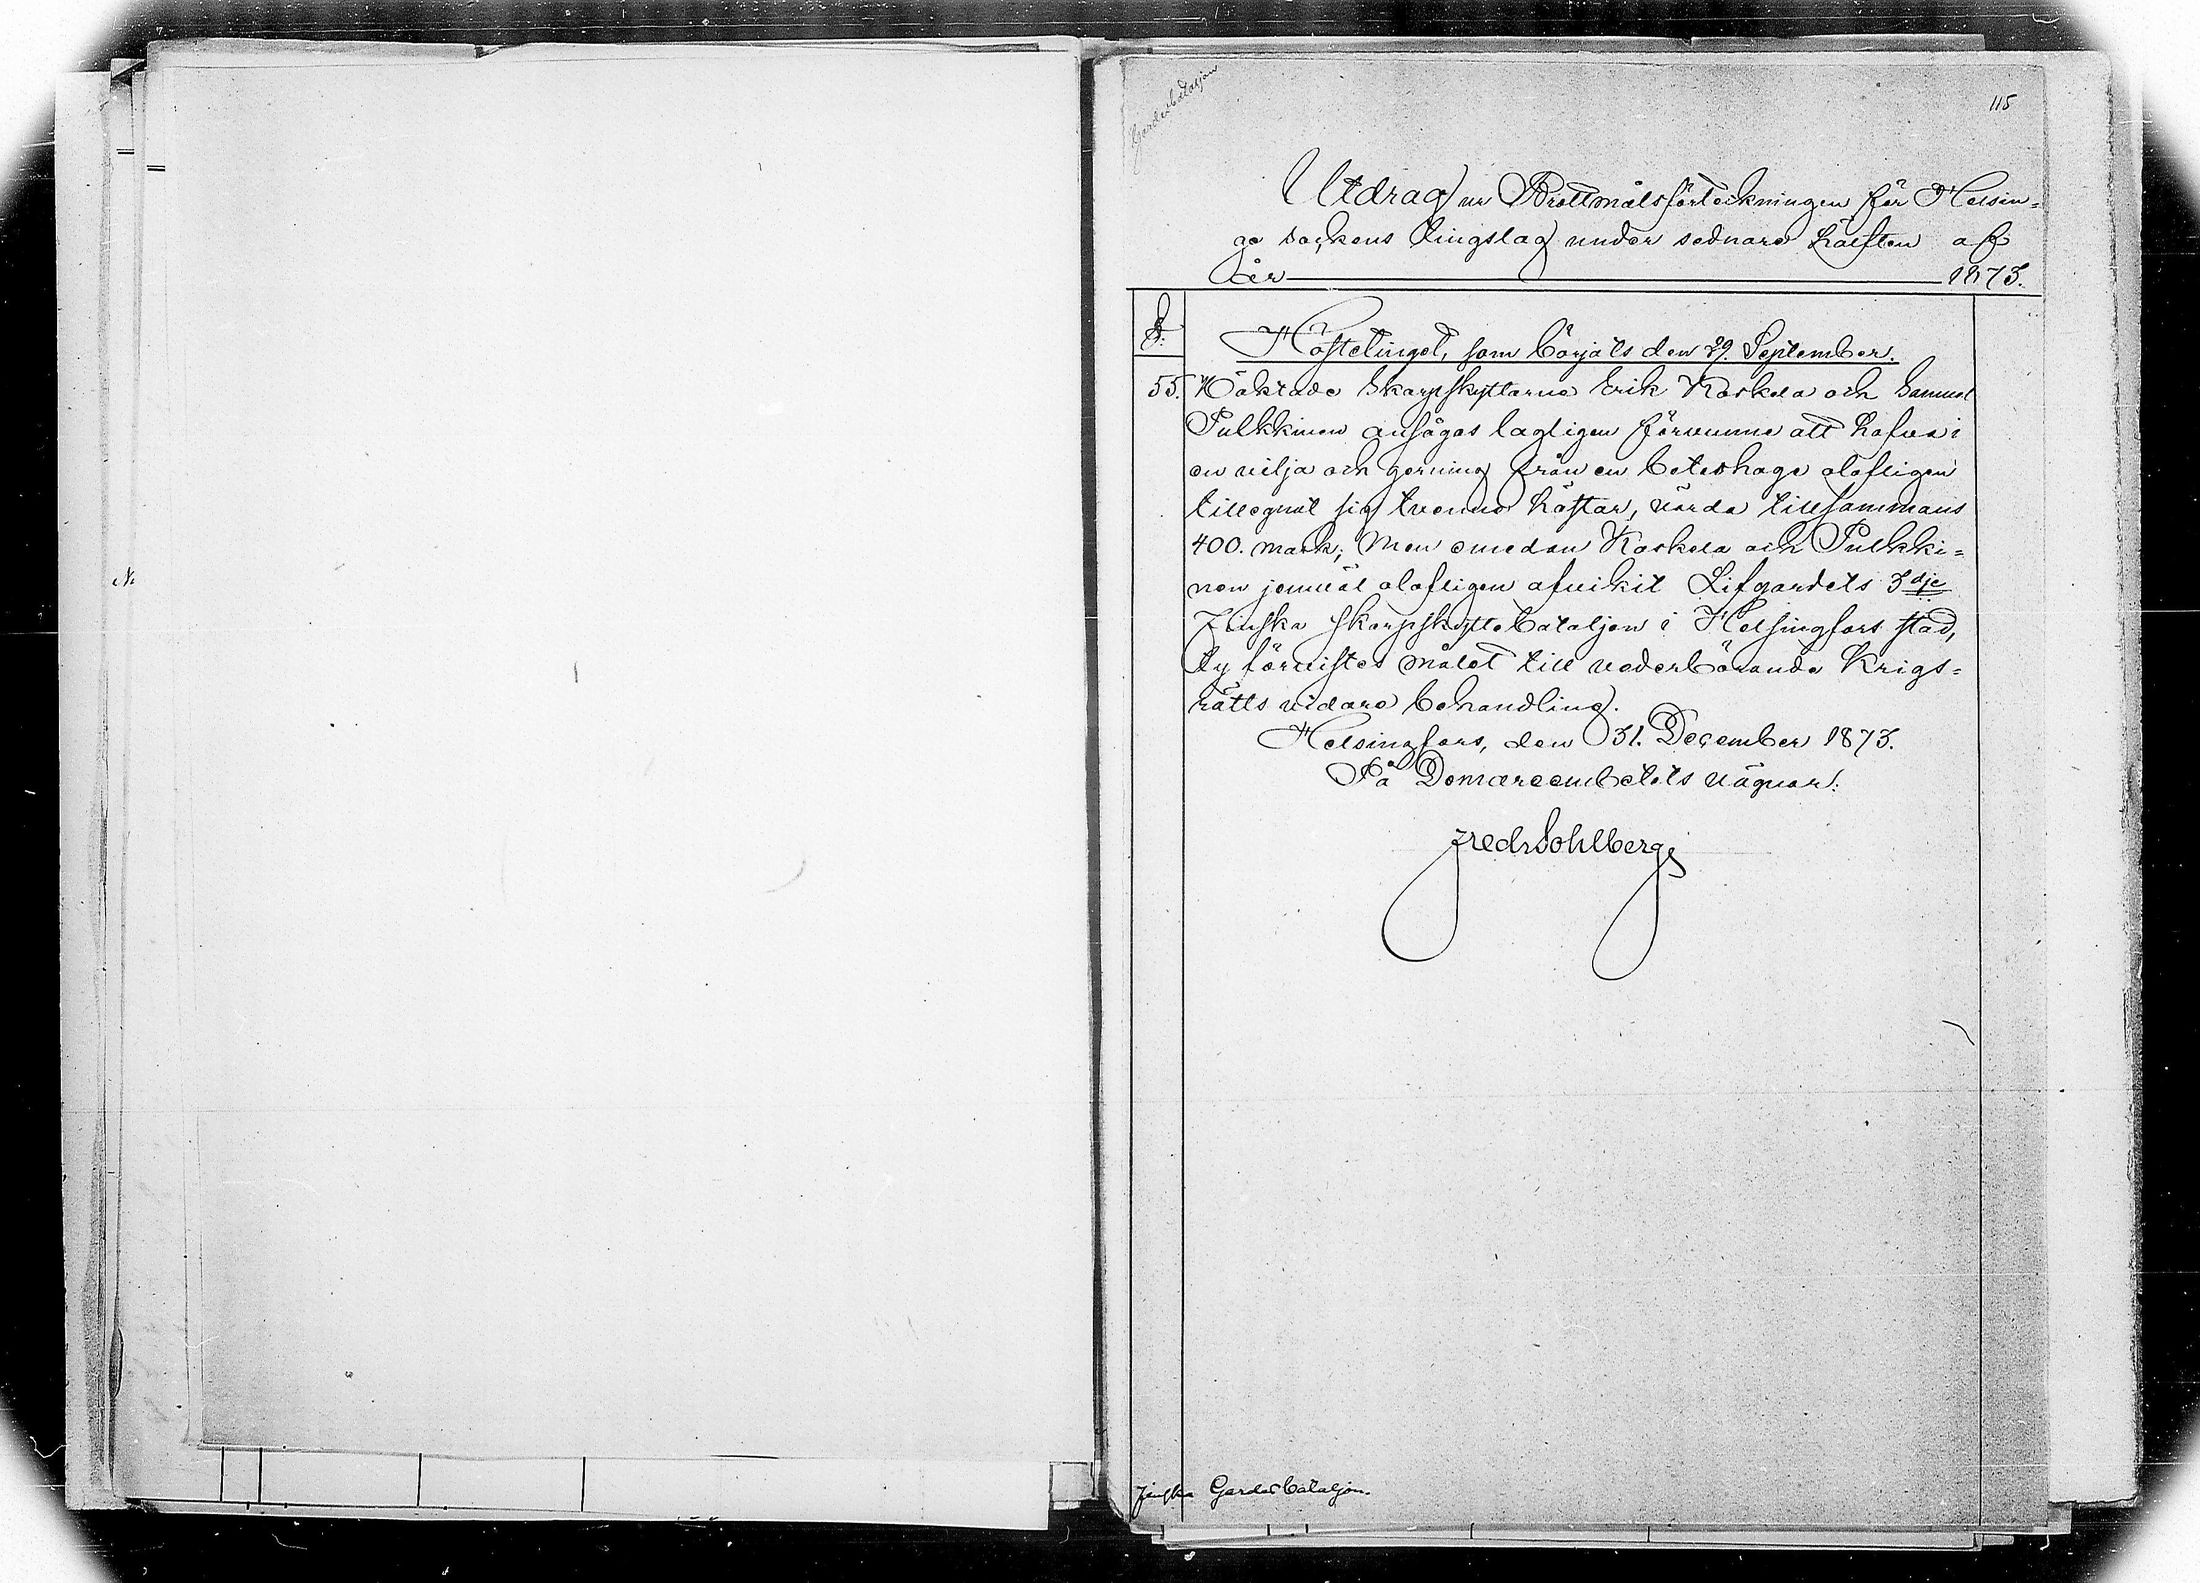 Gardesbataljon
115
Utdrag ur Brottmålsförteckningen för Helsin=
ge sockens tingslag under sednare hälften af
år 1873.
§.
Höstetinget, som börjats den 29. September.
55. Häktade Skarpskyttarne Erik Koskela och Samuel
Pulkkinen ansågos lagligen förvunne att hafva i
en vilja och gerning från en beteshage olofligen
tillegnat sig tvenne hästar, värda tillsammans
400. mark; Men emedan Koskela och Pulkki=
nen jemväl olofligen afvikit Lifgardets 3dje
Finska Skarpskyttebataljon i Helsingfors stad,
ty förvistes målet till vederbörande Krigs=
rätts vidare behandling.
Helsingfors, den 31. December 1873.
På Domareembetets vägnar:
Fredr Sohlberg
Finska Gardesbataljon.